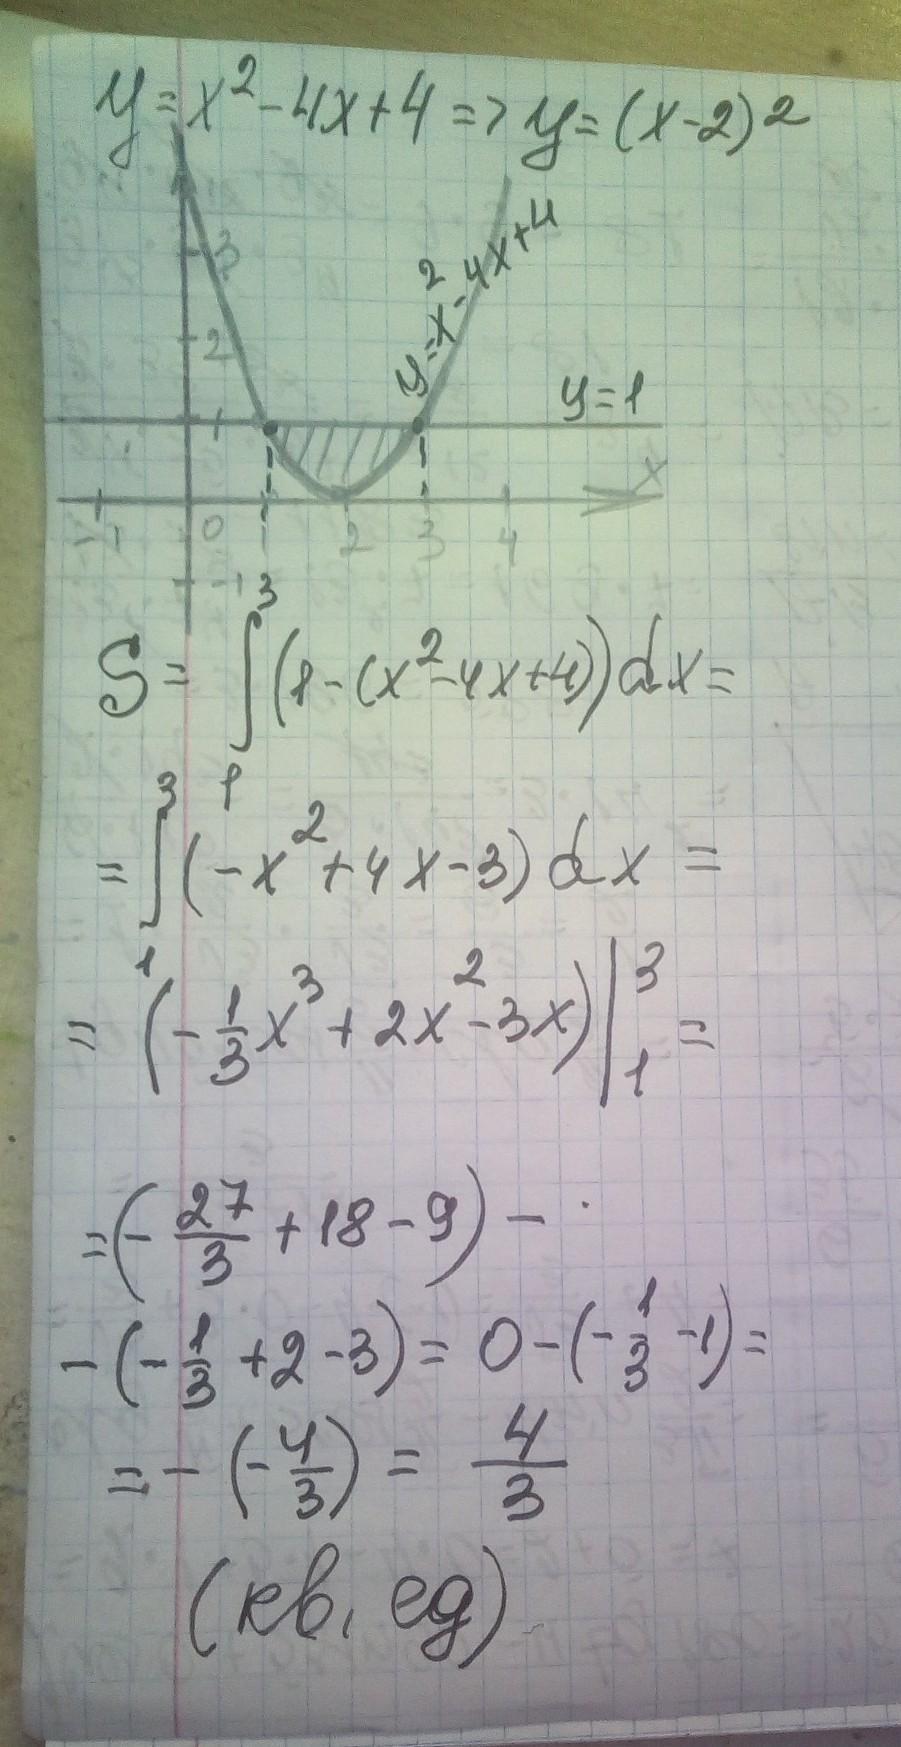 y = x² - 4x + 4 => y = (x-2)²
3
y = x² - 4x + 4
2
y = 1
1
x
-1 0 1 2 3 4
-1
S = ∫₁³ (1 - (x² - 4x + 4)) dx =
= ∫₁³ (-x² + 4x - 3) dx =
= (-1/3 x³ + 2x² - 3x) |₁³ =
= (-27/3 + 18 - 9) -
- (-1/3 + 2 - 3) = 0 - (-1/3 - 1) =
= - (-4/3) = 4/3
(кв. ед)